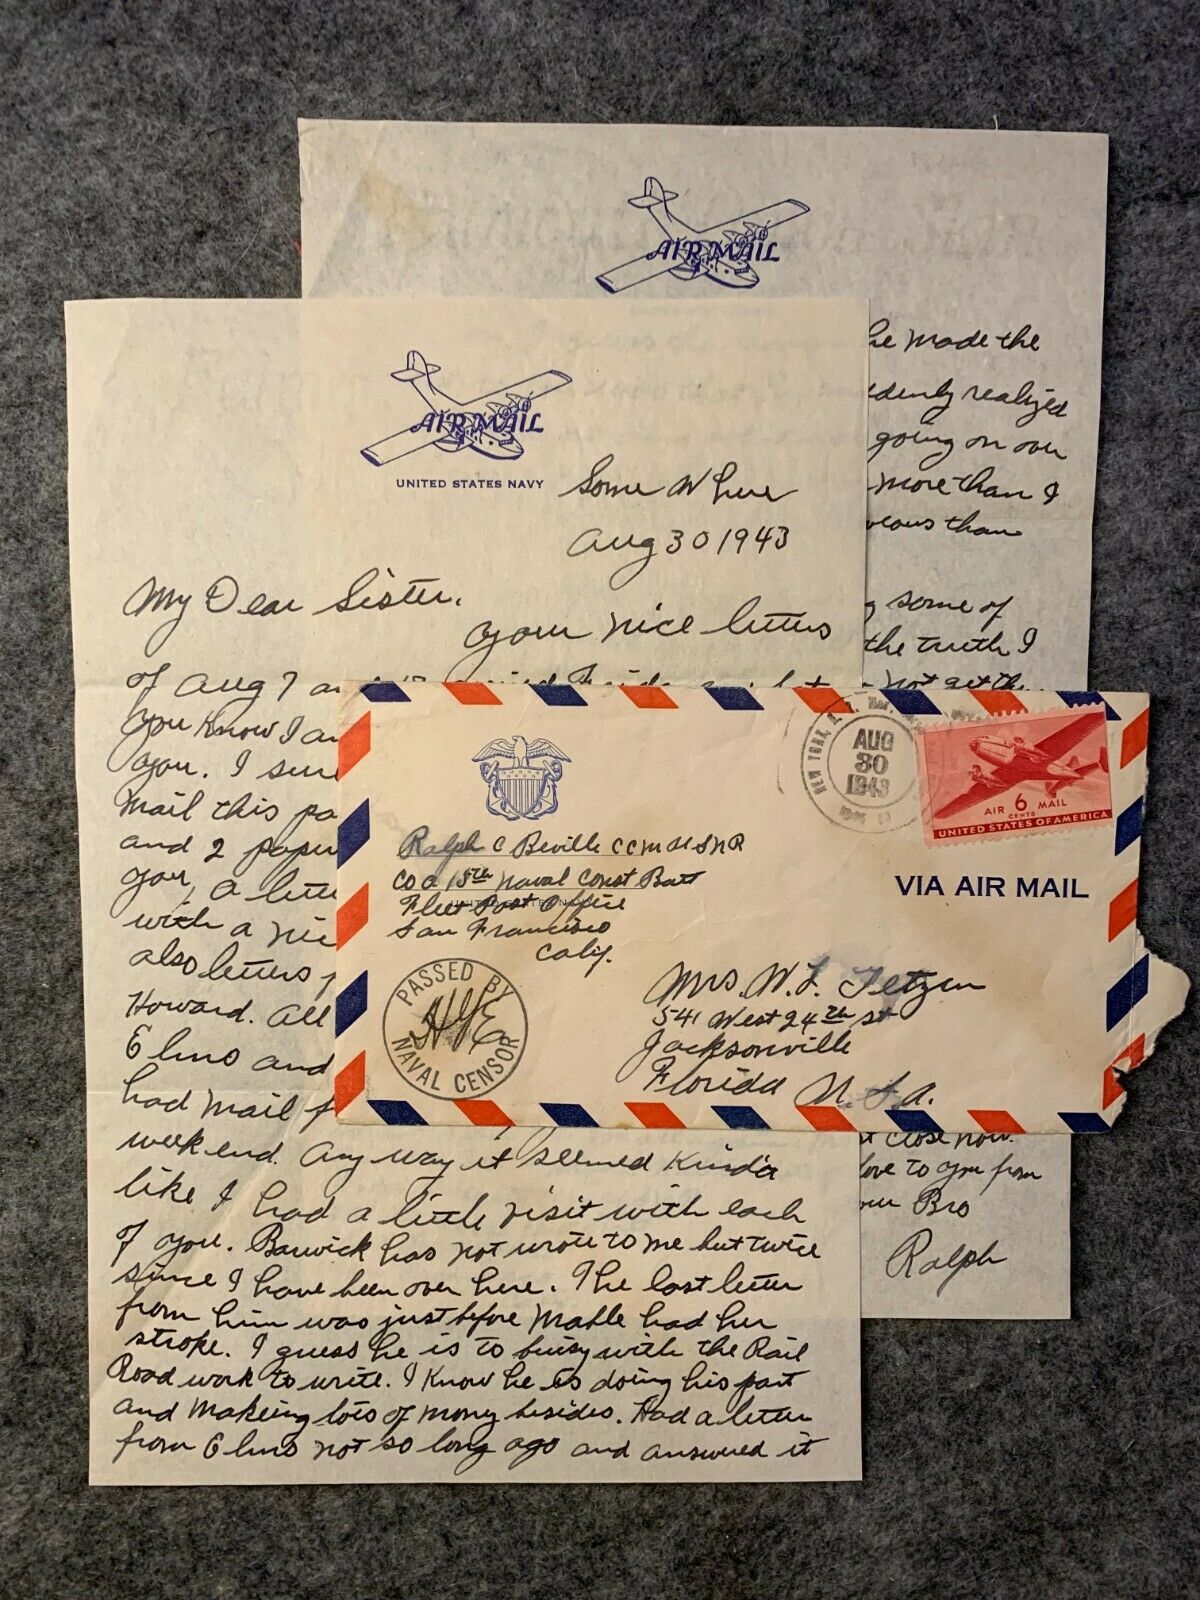 AIR MAIL
he made the
realized
going on over
more than I
than
some of
the truth I
not get the
AIR MAIL
UNITED STATES NAVY
Some Where
Aug 30 1943
My Dear Sister,
your nice letters
of Aug 7
You Know I
you. I sure
Mail this
and 2
you, a
with a
also letters
Howard. All
Elmo and
had Mail
week end. Any way it seemed Kinda
like I had a little visit with each
of you. Barwick has not wrote to me but twice
since I have been over here. The last letter
from him was just before Mable had her
stroke. I guess he is to busy with the Rail
Road work to write. I Know he is doing his part
and Making lots of Money besides. Had a letter
from Elmo not so long ago and answered it
Ralph C Beville CCM USNR
Co A 15th Naval Const Batt
Fleet Post Office
San Francisco
Calif.
NEW YORK, N.Y.
AUG
30
1943
AIR 6 MAIL
CENTS
UNITED STATES OF AMERICA
VIA AIR MAIL
PASSED BY
NAVAL CENSOR
Mrs. W. L. Fetzer
541 West 24th St
Jacksonville
Florida U.S.A.
close now.
love to you from
Bro
Ralph